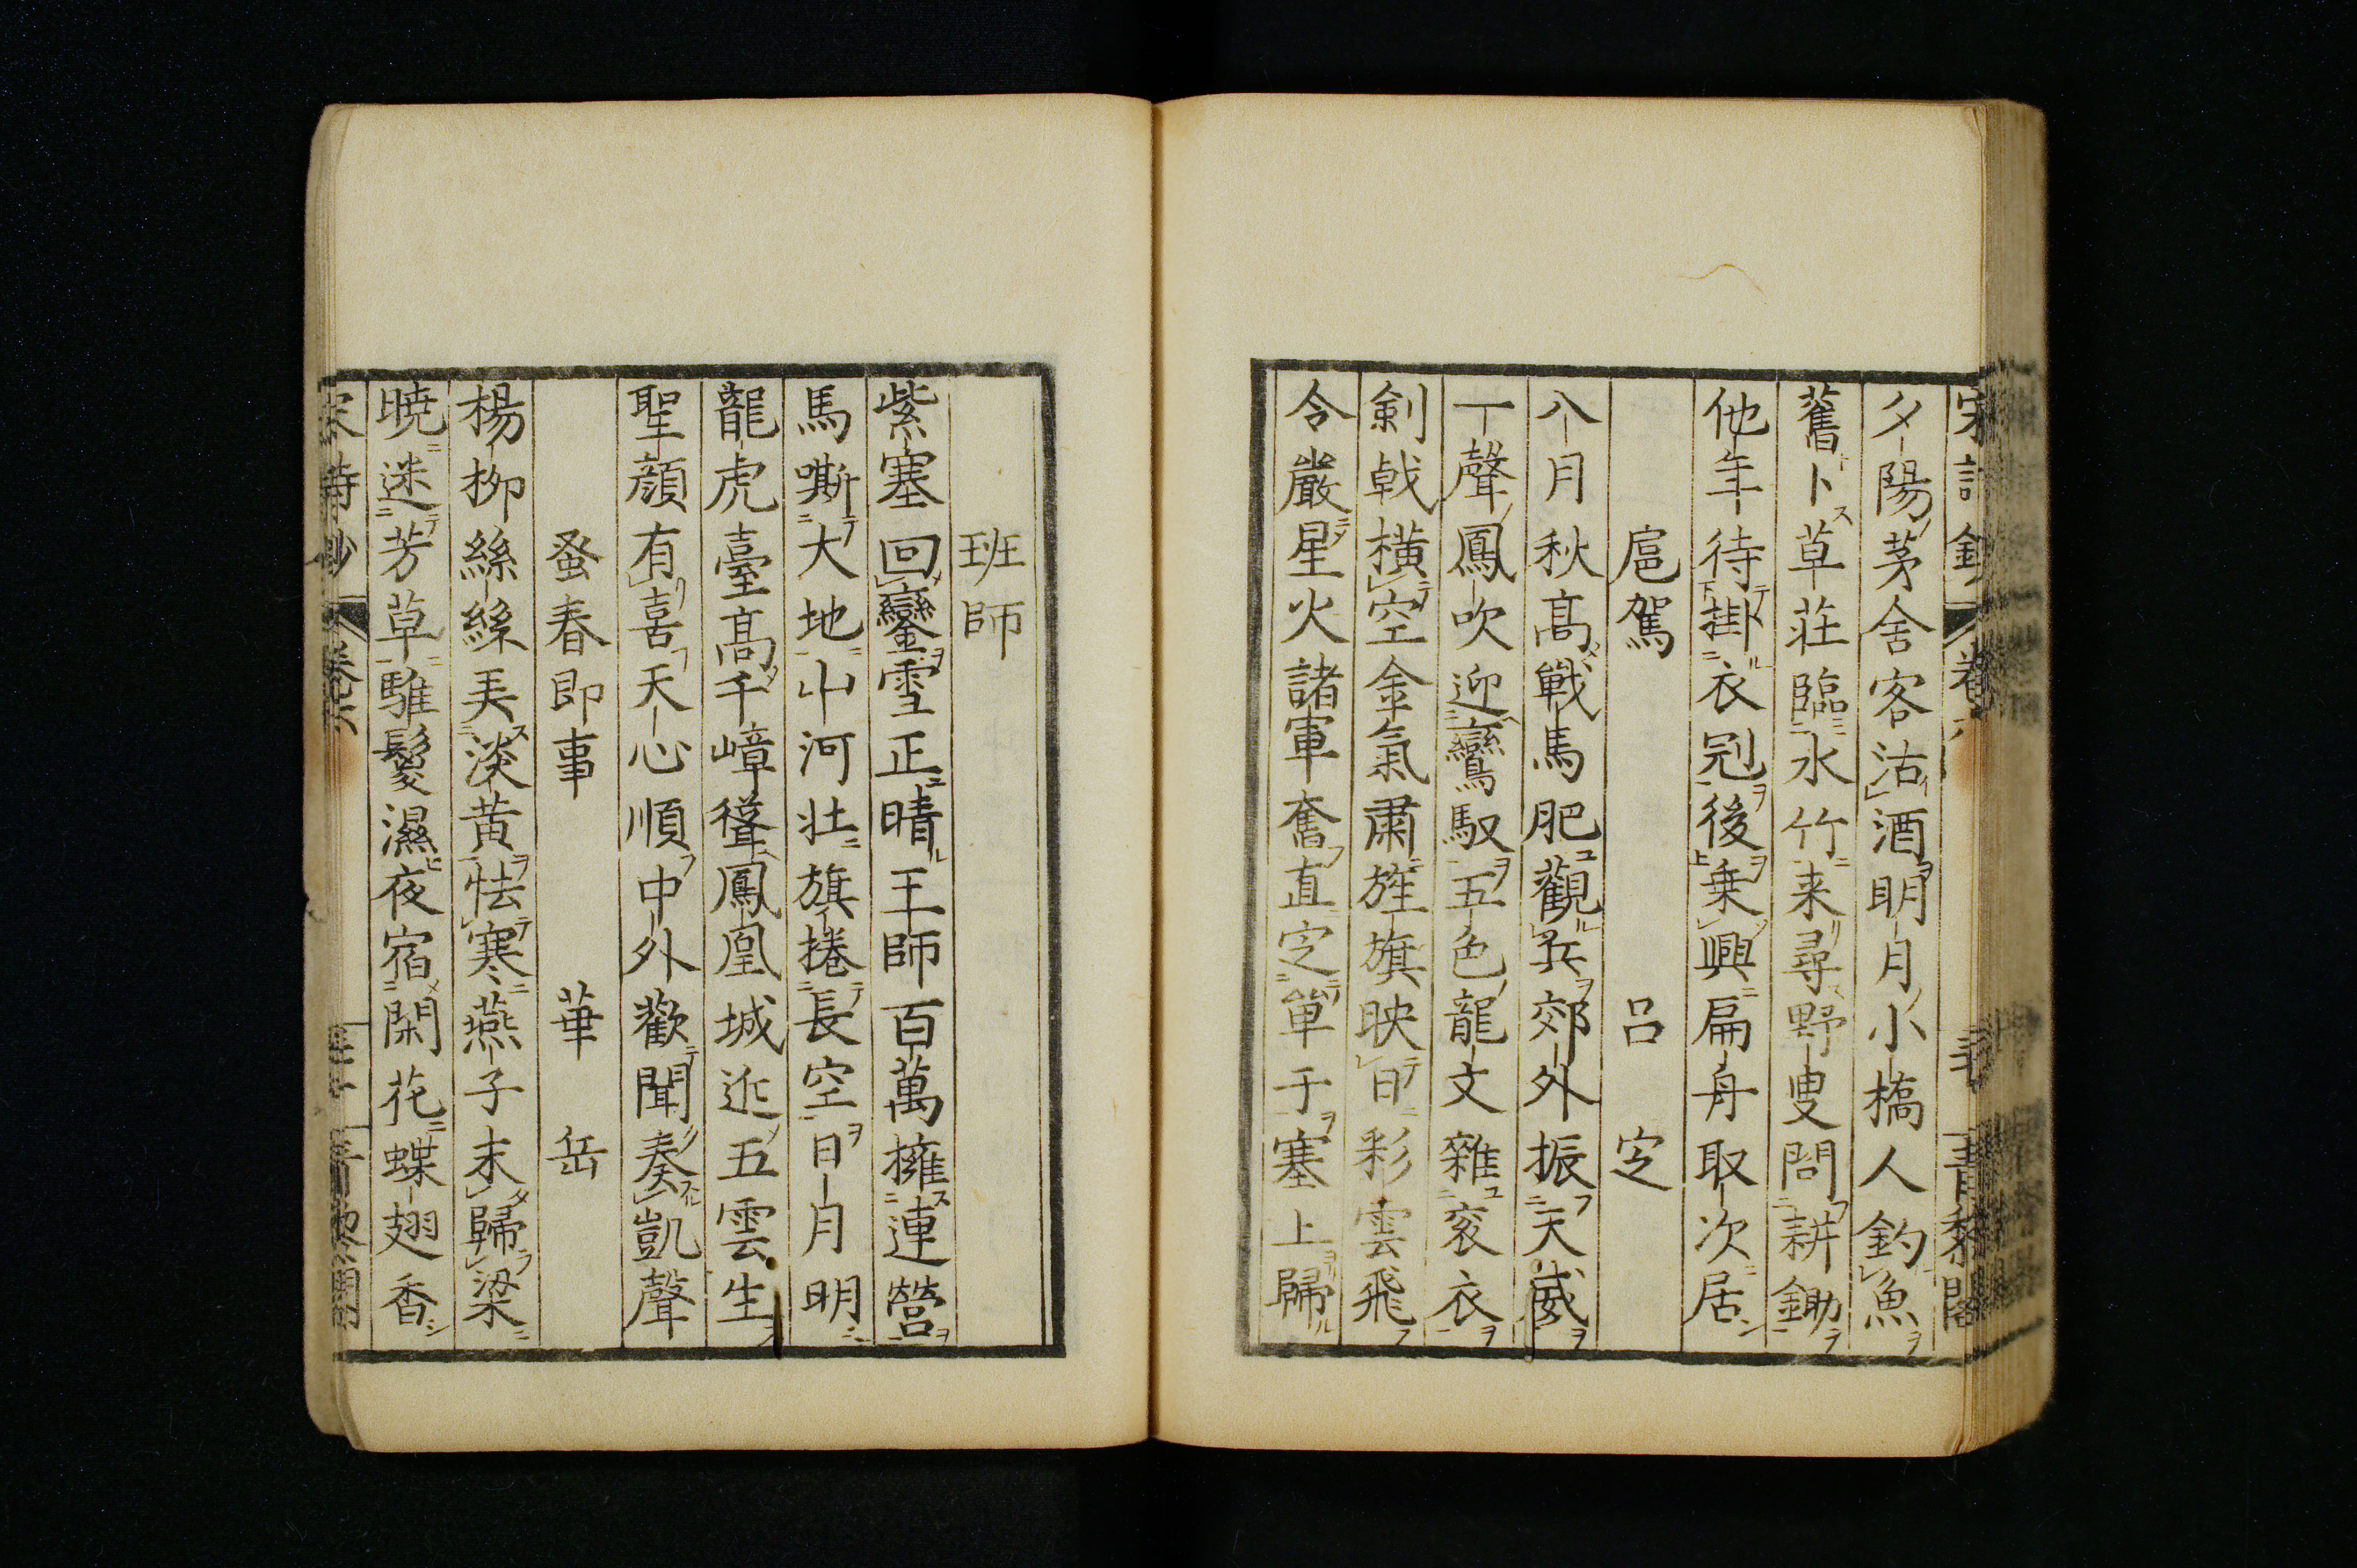 宋詩鈔 卷六 青藜閣
夕陽茅舍客沽酒明月小橋人釣魚
舊卜草莊臨水竹来尋野叟問耕鋤
他年待掛衣冠後乗興扁舟取次居
扈駕 呂定
八月秋高戦馬肥觀兵郊外振天威
一聲鳳吹迎鸞馭五色龍文雜衮衣
剣戟横空金氣肅旌旗映日彩雲飛
令嚴星火諸軍奮直定單于塞上歸
班師
紫塞回鑾雪正晴王師百萬擁連營
馬嘶大地山河壮旗捲長空日月明
龍虎臺高千嶂聳鳳凰城近五雲生
聖顔有喜天心順中外歡聞奏凱聲
蚤春即事 華岳
楊柳絲絲弄淡黄怯寒燕子未歸梁
暁迷芳草騅鬉濕夜宿閑花蝶翅香
宋詩鈔 卷六